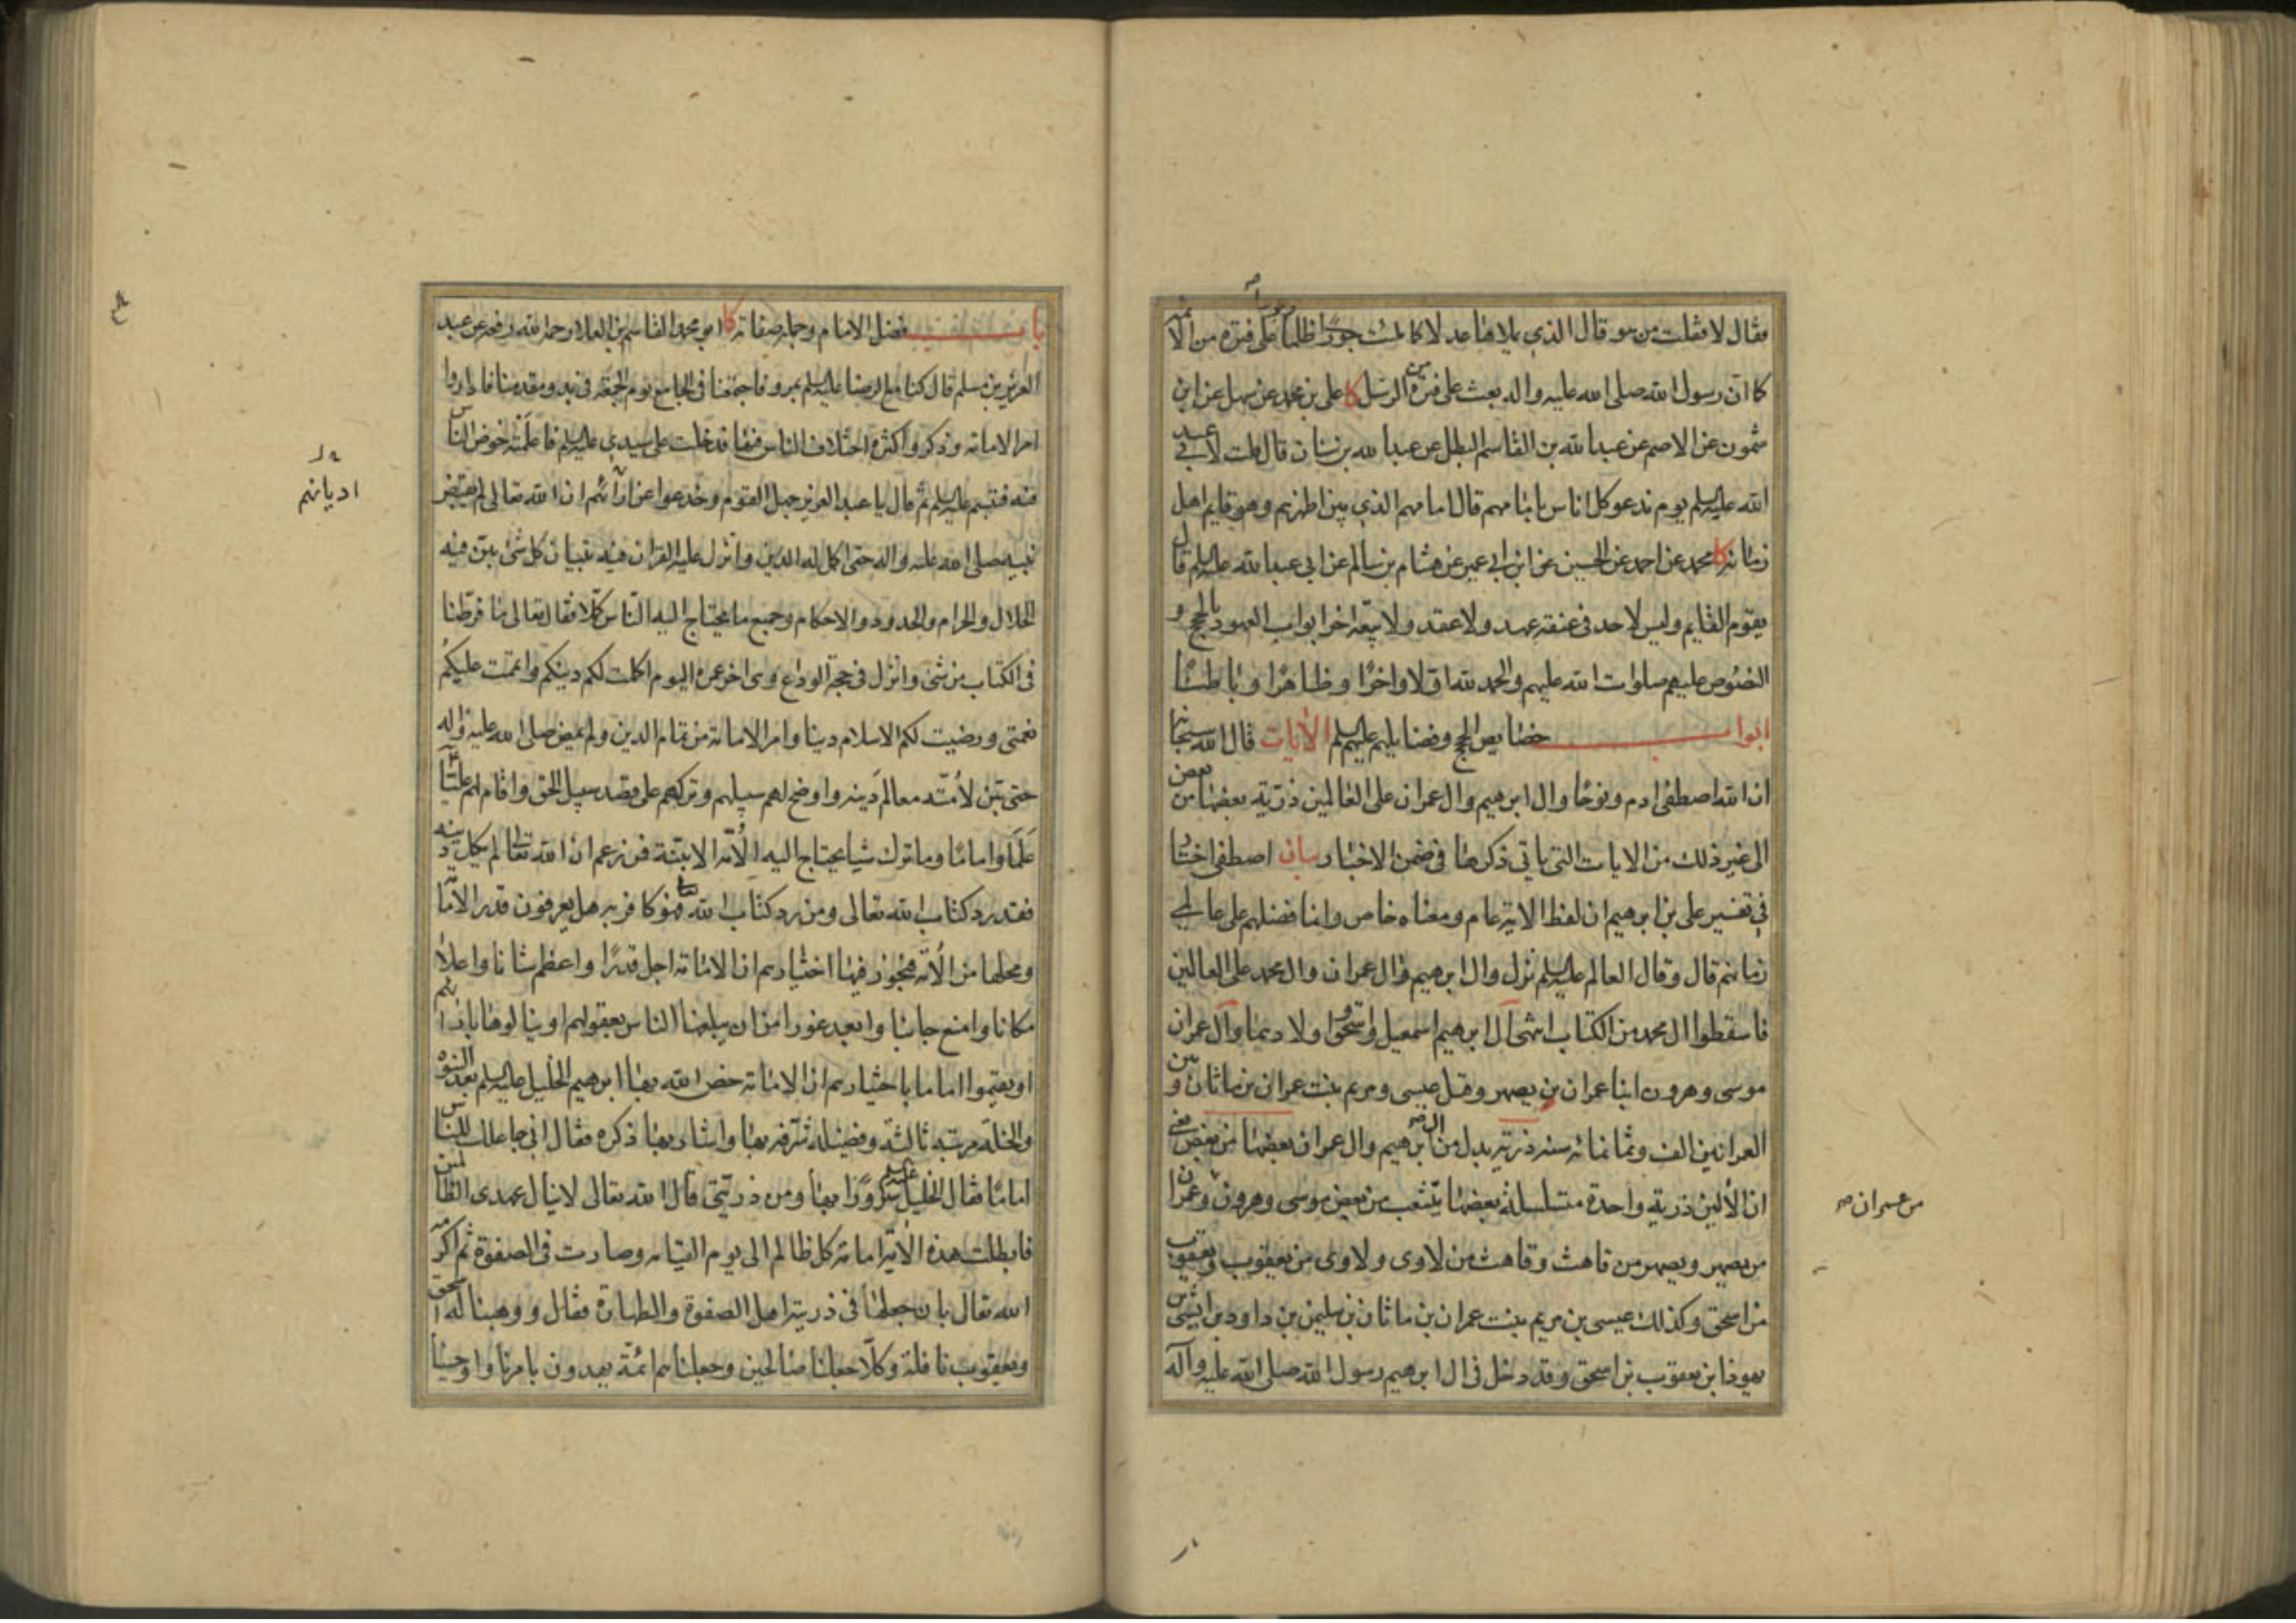 فقال لا فقلت من هو قال الذي يملاها عدلا كما ملئت جورا وظلما على فترة من الائمة
كما ان رسول الله صلى الله عليه واله بعث على فترة من الرسل كا على بن محمد عن سهل عن ابن
شمون عن الاصم عن عبدالله بن القاسم البطل عن عبدالله بن سنان قال قلت لابي عبد
الله عليه السلم يوم ندعو كل اناس بامامهم قال امامهم الذي بين اظهرهم وهو قايم اهل
زمانه كا محمد عن احمد عن الحسين عن ابن ابي عمير عن هشام بن سالم عن ابي عبدالله عليه السلم قال
يقوم القايم وليس لاحد في عنقه عهد ولا عقد ولا بيعة اخر ابواب العهود بالحجج و
النصوص عليهم صلوات الله عليهم والحمد لله اولا واخرا وظاهرا وباطنا
ابواب خصايص الحجج وفضايلهم عليهم السلم الايات قال الله سبحانه
ان الله اصطفى ادم ونوحا وال ابرهيم وال عمران على العالمين ذرية بعضها من بعض
الى غير ذلك من الايات التي ياتي ذكرها في ضمن الاخبار بيان اصطفى اختار
في تفسير على بن ابرهيم ان لفظ الاية عام ومعناه خاص وانما فضلهم على عالمي
زمانهم قال وقال العالم عليه السلم نزل وال ابرهيم وال عمران وال محمد على العالمين
فاسقطوا ال محمد من الكتاب انتهى آل ابرهيم اسمعيل واسحق واولادهما وآل عمران
موسى وهرون ابنا عمران بن يصهر وقيل عيسى ومريم بنت عمران بن ماثان و بين
العمرانين الف وثمانمائه سنه ذرية بدل من ال ابرهيم وال عمران بعضها من بعض يعني
ان الآلين ذرية واحدة متسلسلة بعضها يتشعب من بعض موسى وهرون وعمران
من عمران صح
من يصهر ويصهر من قاهث وقاهث من لاوى ولاوى من يعقوب ويعقوب
من اسحق وكذلك عيسى بن مريم بنت عمران بن ماثان بن سليمن بن داود بن ايشى من
يهوذا بن يعقوب بن اسحق وقد دخل في ال ابرهيم رسول الله صلى الله عليه وآله
باب فضل الامام وجملة صفاته كا ابو محمد القاسم بن العلا رحمه الله رفعه عن عبد
العزيز بن مسلم قال كنا مع الرضا عليه السلم بمرو فاجتمعنا في الجامع يوم الجمعة في بدو مقدمنا فاداروا
امر الامامة وذكروا كثرة اختلاف الناس فيها فدخلت على سيدي عليه السلم فاعلمته خوض الناس
فيه فتبسم عليه السلم ثم قال يا عبد العزيز جهل القوم وخدعوا عن آرائهم ان الله تعالى لم يقبض
اديانهم
نبيه صلى الله عليه واله حتى اكمل له الدين وانزل عليه القران فيه تبيان كل شئ بين فيه
الحلال والحرام والحدود والاحكام وجميع ما يحتاج اليه الناس كملا فقال تعالى ما فرطنا
في الكتاب من شئ وانزل في حجة الوداع وهي اخر عمره اليوم اكملت لكم دينكم واتممت عليكم
نعمتي ورضيت لكم الاسلام دينا وامر الامامة من تمام الدين ولم يمض صلى الله عليه واله
حتى بين لامته معالم دينه واوضح لهم سبيلهم وتركهم على قصد سبيل الحق واقام لهم عليا
علما واماما وما ترك شيا يحتاج اليه الامة الا بينة فمن زعم ان الله تعالى لم يكمل دينه
فقد رد كتاب الله تعالى ومن رد كتاب الله تعالى فهو كافر به هل يعرفون قدر الامامة
ومحلها من الامة فيجوز فيها اختيارهم ان الامامة اجل قدرا واعظم شانا واعلا
مكانا وامنع جانبا وابعد غورا من ان يبلغها الناس بعقولهم او ينالوها بارائهم
او يقيموا اماما باختيارهم ان الامامة خص الله بها ابرهيم الخليل عليه السلم بعد النبوة
والخلة مرتبة ثالثة وفضيلة شرفه بها واشاد بها ذكره فقال اني جاعلك للناس
اماما فقال الخليل عليه السلم سرورا بها ومن ذريتي قال الله تعالى لا ينال عهدي الظالمين
فابطلت هذه الاية امامة كل ظالم الى يوم القيامه وصارت في الصفوة ثم اكرمه
الله تعالى بان جعلها في ذريته اهل الصفوة والطهارة فقال ووهبنا له اسحق
ويعقوب نافلة وكلا جعلنا صالحين وجعلناهم ائمة يهدون بامرنا واوحينا